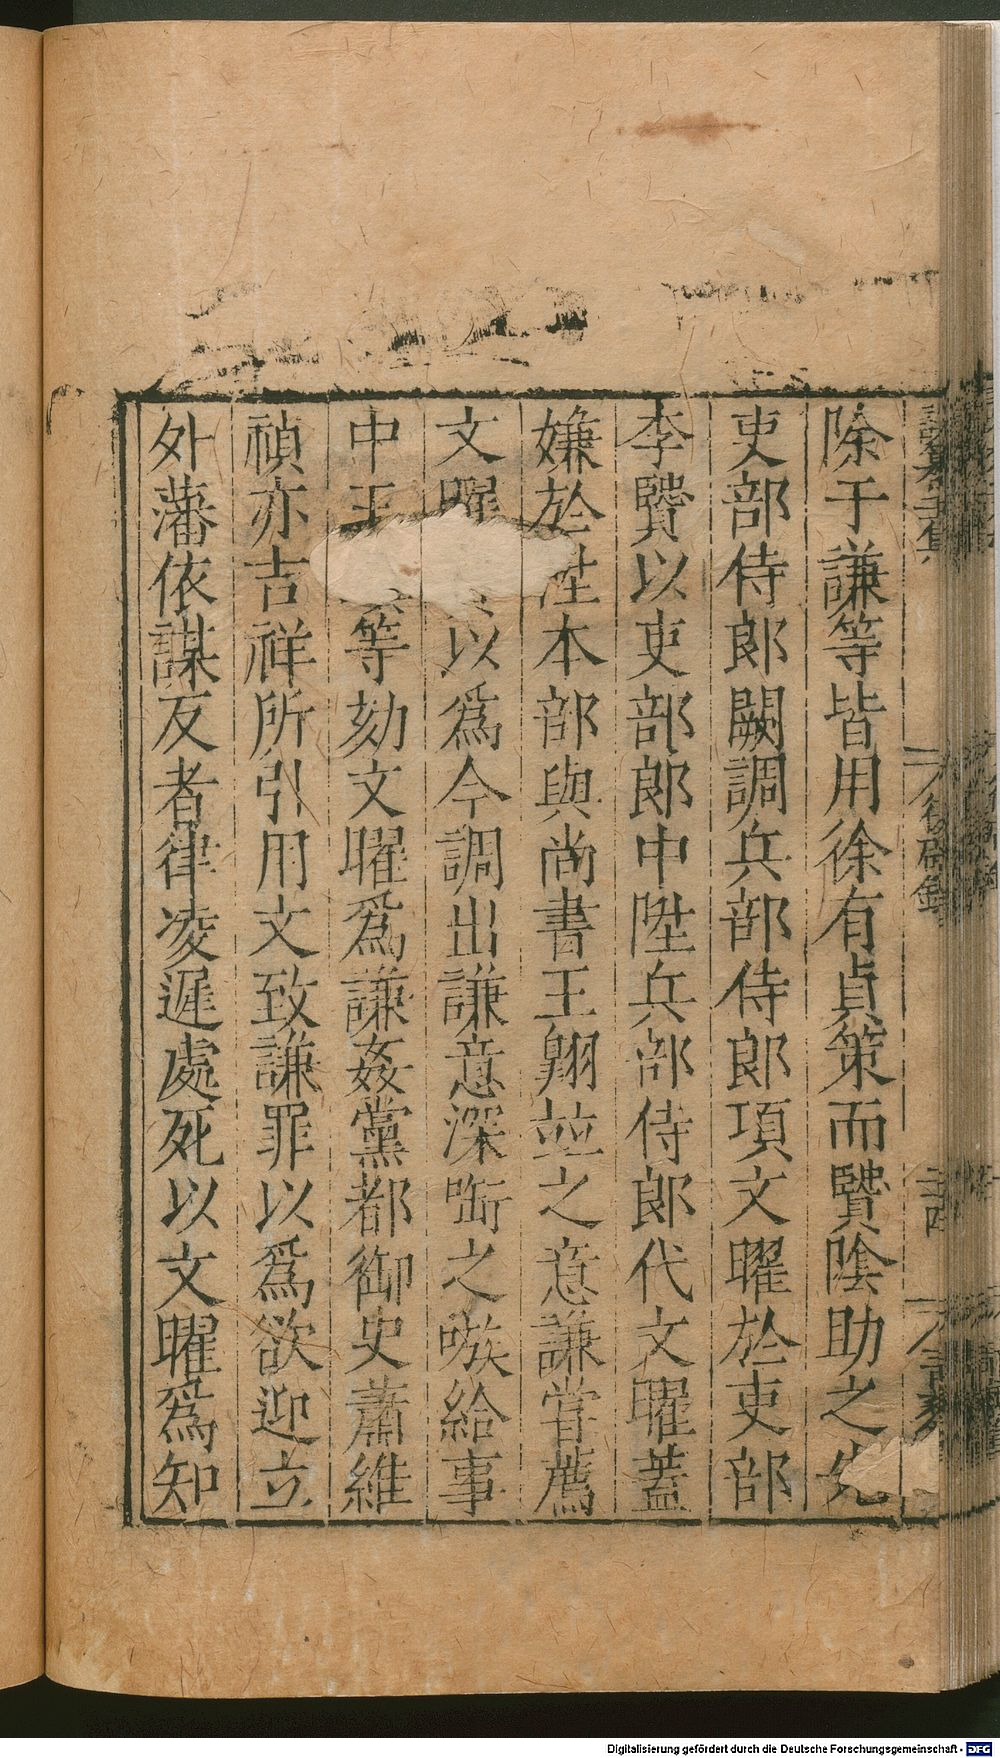 除于謙等皆用徐有貞策而賢陰助之先
吏部侍郎闕調兵部侍郎項文曜於吏部
李賢以吏部郎中陞兵部侍郎代文曜蓋
嫌於陞本部與尚書王翱並之意謙嘗薦
文曜 以爲今調出謙意深啣之嗾給事
中王 等劾文曜爲謙姦黨都御史蕭維
禎亦吉祥所引用文致謙罪以爲欲迎立
外藩依謀反者律凌遲處死以文曜爲知
後 錄
Digitalisierung gefördert durch die Deutsche Forschungsgemeinschaft - DFG